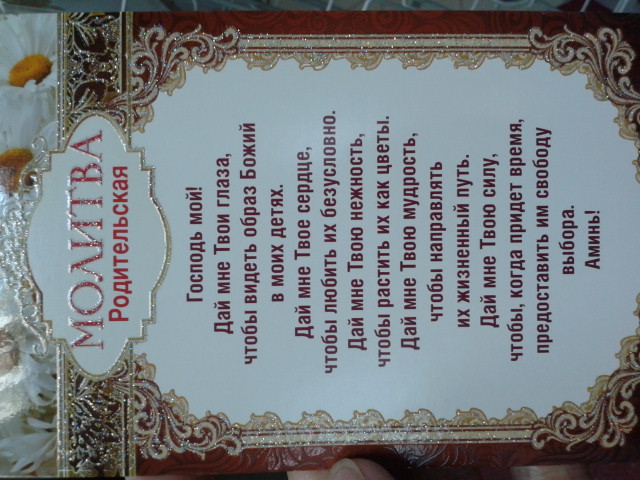 МОЛИТВА
Родительская
Господь мой!
Дай мне Твои глаза,
чтобы видеть образ Божий
в моих детях.
Дай мне Твое сердце,
чтобы любить их безусловно.
Дай мне Твою нежность,
чтобы растить их как цветы.
Дай мне Твою мудрость,
чтобы направлять
их жизненный путь.
Дай мне Твою силу,
чтобы, когда придет время,
предоставить им свободу
выбора.
Аминь!